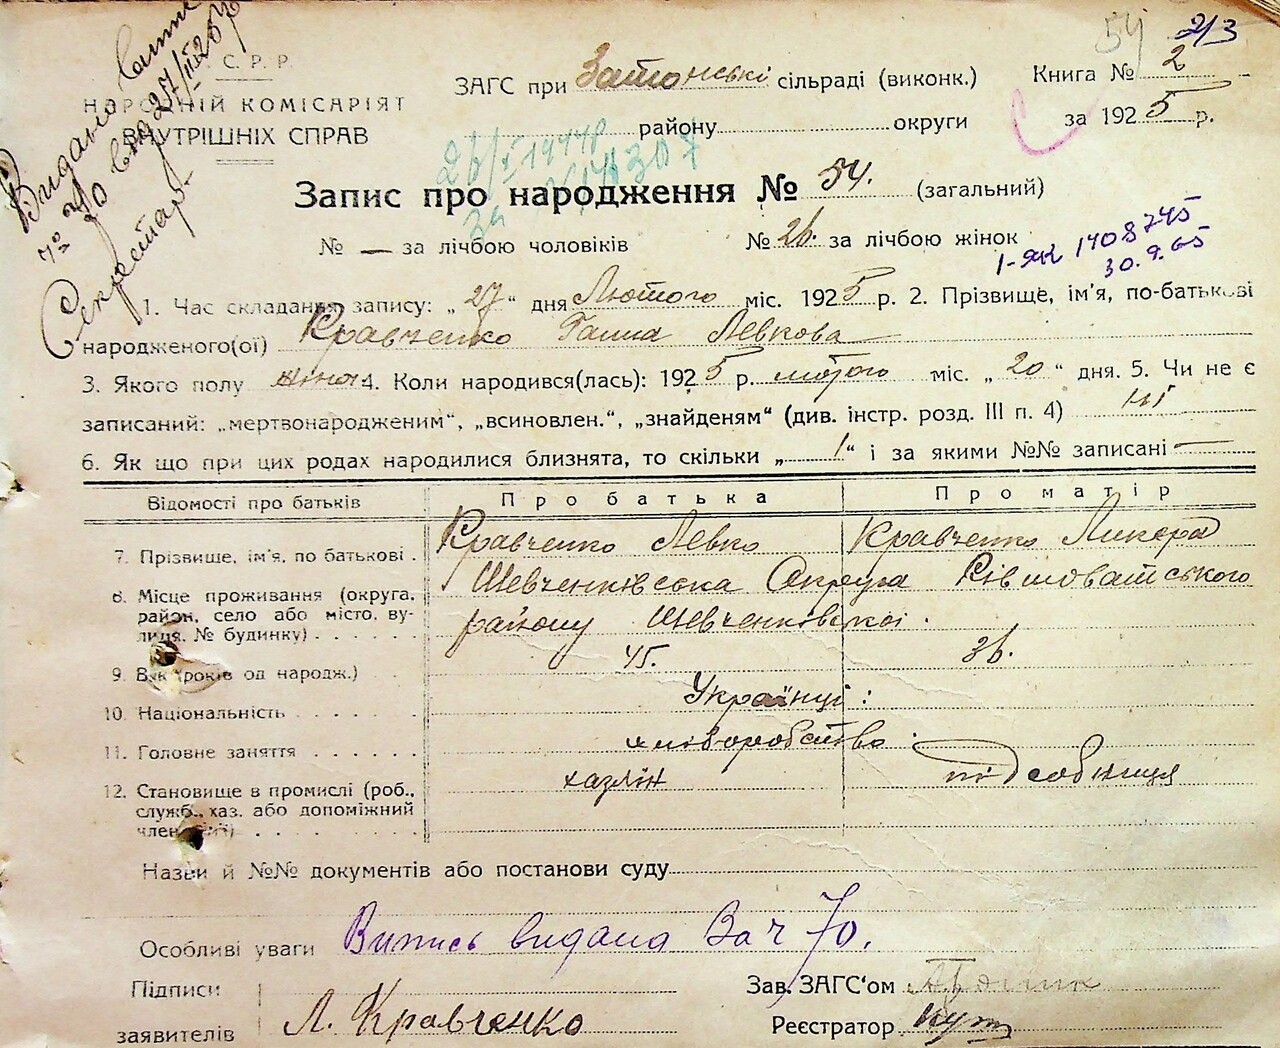 54 213
С. Р. Р.
НАРОДНІЙ КОМІСАРІЯТ
ВНУТРІШНІХ СПРАВ
Видано
№ 70 від 27/II 25
Секретар
ЗАГС при Затонській сільраді (виконк.)
району округи
Книга № 2
за 1925 р.
Запис про народження № 54. (загальний)
№ — за лічбою чоловіків № 26. за лічбою жінок
1-ЯК 1408745
30.9.65
1. Час складання запису: „27“ дня Лютого міс. 1925 р. 2. Прізвище, ім'я, по-батькові
народженого(ої) Кравченко Ганна Левкова
3. Якого полу жіноч 4. Коли народився(лась): 1925 р. лютого міс. „20“ дня. 5. Чи не є
записаний: „мертвонародженим“, „всиновлен.“, „знайденям“ (див. інстр. розд. III п. 4) ні
6. Як що при цих родах народилися близнята, то скільки „1“ і за якими №№ записані —
Відомості про батьків Про батька Про матір
7. Прізвище, ім'я, по батькові . Кравченко Левко Кравченко Ликера
8. Місце проживання (округа, район, село або місто, вулиця, № будинку) Шевченківська Округа
району Шевченківської .
9. Вік (років од народж.) 45. 36.
10. Національність Українці :
11. Головне заняття хліборобство .
12. Становище в промислі (роб., служб., хаз. або допоміжний член сім'ї) хазяїн підсобниця
Назви й №№ документів або постанови суду
Особливі уваги Випись видана За ч 70.
Підписи
заявителів Л. Кравченко
Зав. ЗАГС'ом
Реєстратор